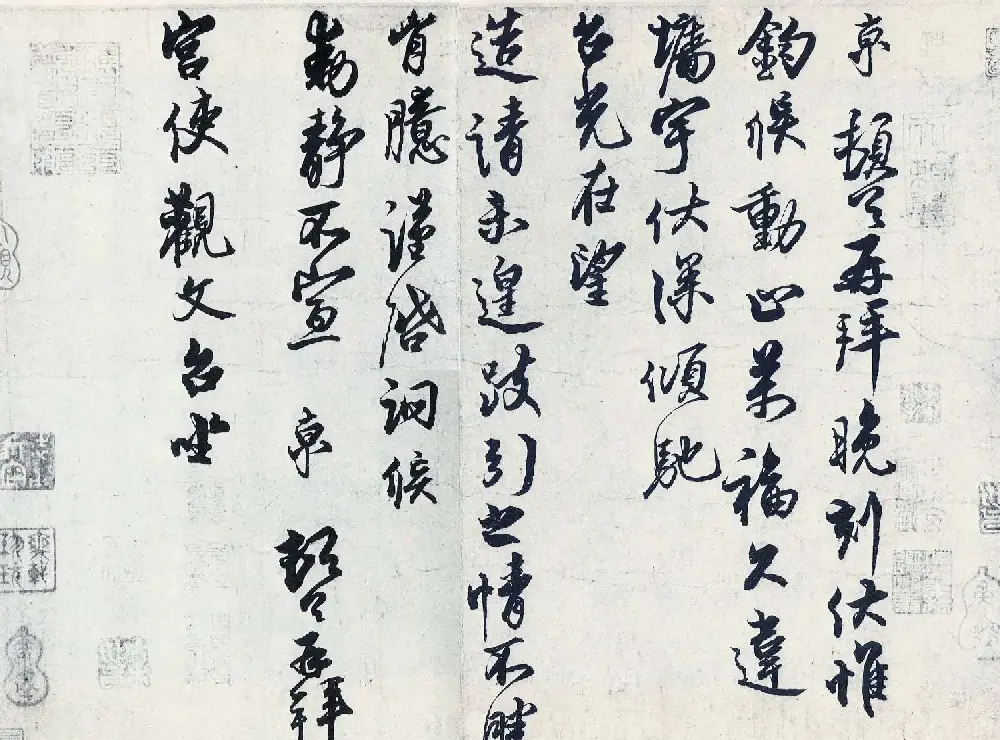 京頓首再拜晚刻伏惟
鈞候動止萬福久違
墻宇伏深傾馳
台光在望
造請未遑跂引之情不勝
胷臆謹啓詗候
動靜不宣京頓首再拜
宮使觀文台坐